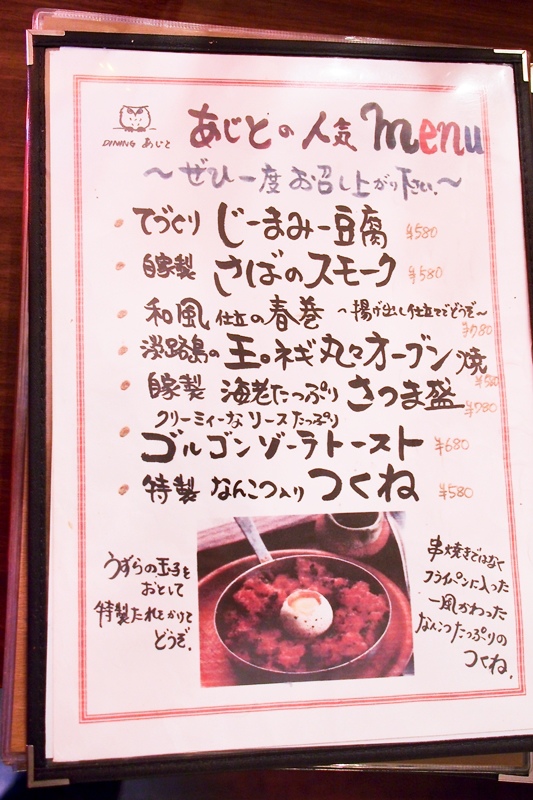 DINING あじと
あじとの人気 menu
～ぜひ一度お召し上がり下さい。～
てづくり じーまみー豆腐 ¥580
自家製 さばのスモーク ¥580
和風仕立の春巻 ～揚げ出し仕立てでどうぞ～
¥780
淡路島の玉ネギ丸々オーブン焼
¥580
自家製 海老たっぷりさつま盛 ¥780
クリーミィーなソースたっぷり
ゴルゴンゾーラトースト ¥680
特製 なんこつ入り つくね ¥580
うずらの玉子を
おとして
特製たれをかけて
どうぞ。
串焼きではなく
フライパンに入った
一風かわった
なんこつたっぷりの
つくね。